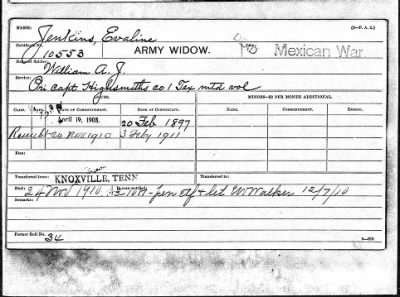 NAME: (3-P. A. 2.)
Jenkins, Evaline
Certificate No.
10553 ARMY WIDOW. Mexican War.
Name of Soldier:
William A. J.
Service:
Pri capt Highsmiths co 1 Tex mtd vol
MINORS—$2 PER MONTH ADDITIONAL.
CLASS. RATE. DATE OF COMMENCEMENT. DATE OF CERTIFICATE. NAME. COMMENCEMENT. ENDING.
April 19, 1908. 20 Feb 1897
24 Nov 1910 3 Feby 1911
Fees:
Transferred from: Transferred to:
KNOXVILLE, TENN
Died Bureau notified:
24 Nov 1910 let W Walker 12/7/10
Remarks:
Former Roll No.
34